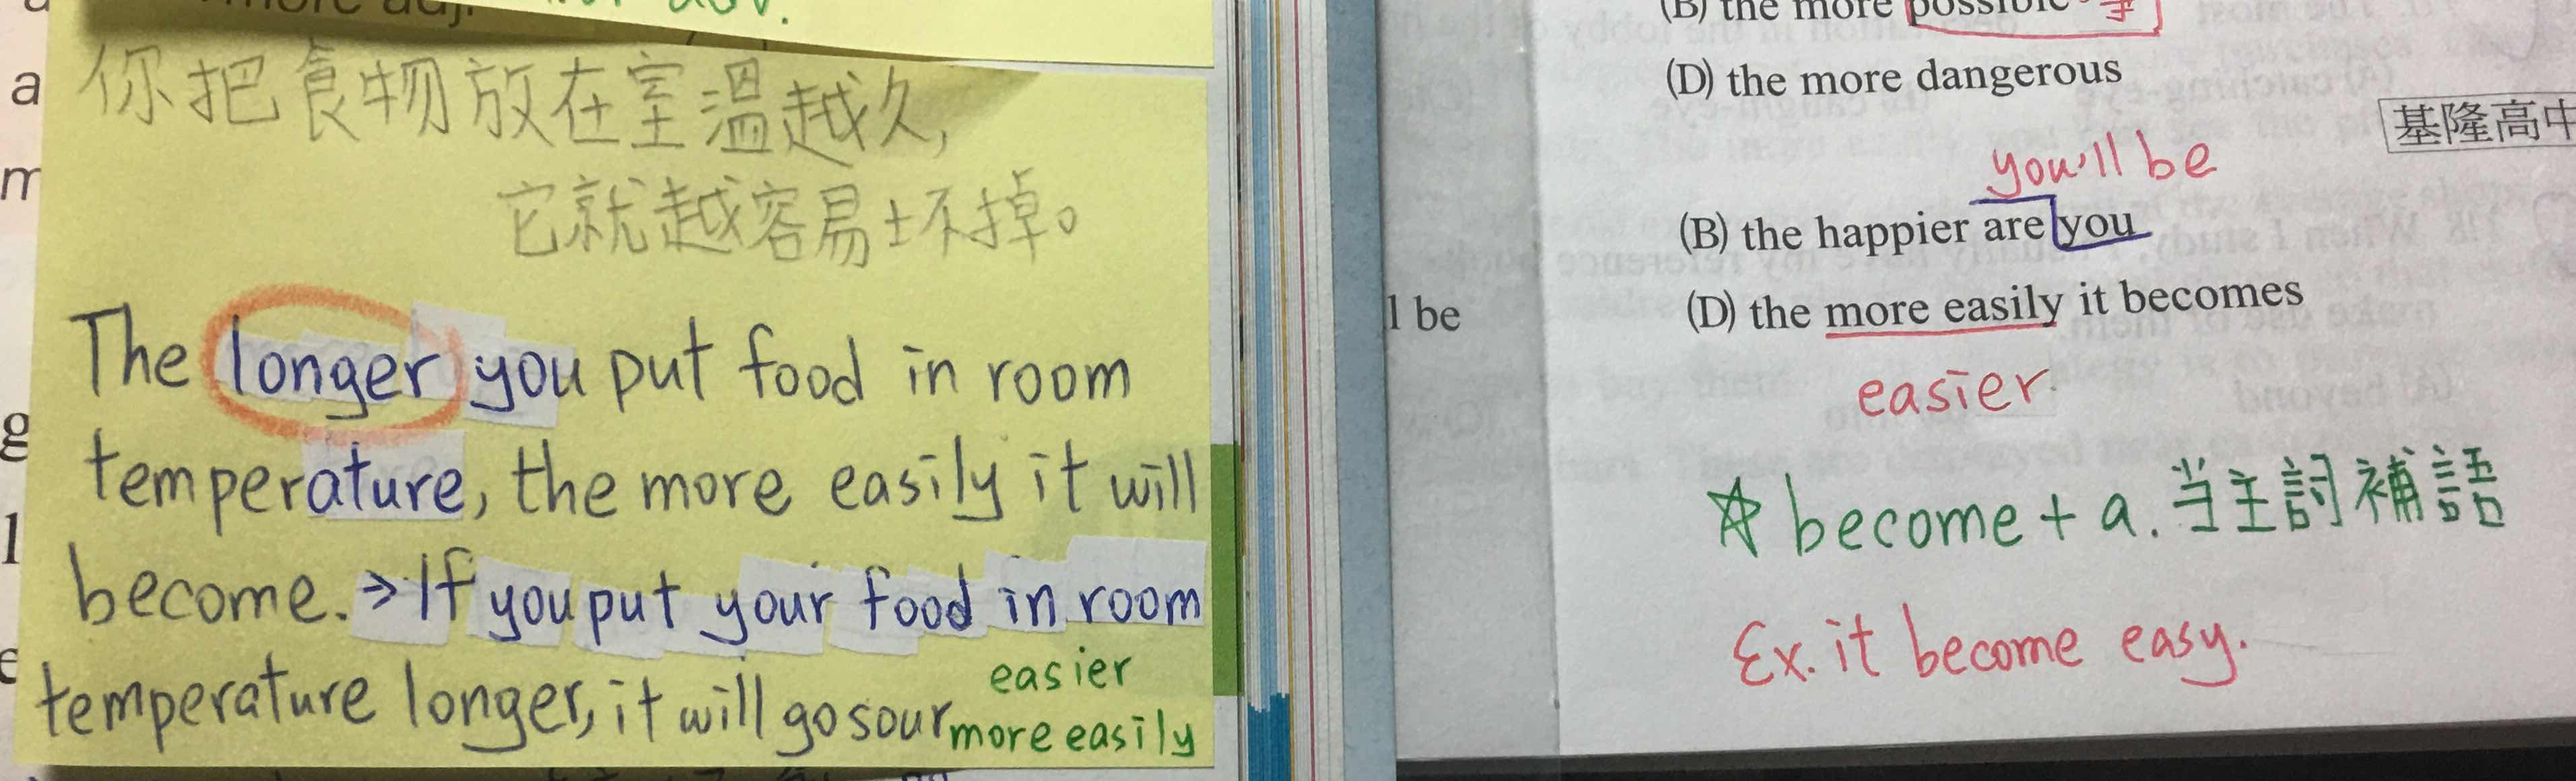 more adj.
adv.
a
你把食物放在室溫越久,
m
它就越容易坏掉。
The longer you put food in room
g
temperature, the more easily it will
l
become. → If you put your food in room
e
temperature longer, it will go sour
easier
more easily
(B) the more possible
(D) the more dangerous
基隆高中
you'll be
(B) the happier are you
l be
(D) the more easily it becomes
easier
☆ become + a. 当主詞補語
Ex. it become easy.